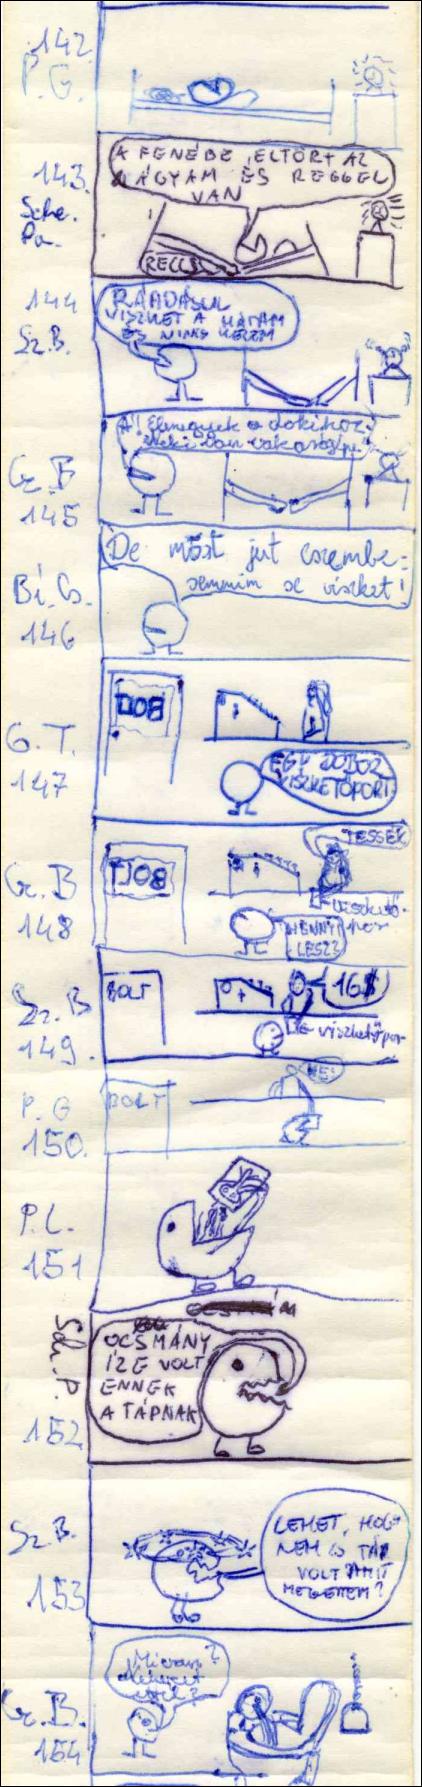 142.
P. G.
143.
Sche.
Pa.
A FENÉBE, ELTÖRT AZ
ÁGYAM ÉS REGGEL
VAN
RECCS
144
Sz. B.
RÁADÁSUL
VISZKET A HÁTAM
ÉS NINCS KEZEM
Gr. B
145
A! Elmegyek a dokihoz.
Neki van vakarógépe
Bi. Cs.
146
De most jut eszembe:
semmim se viszket!
G. T.
147
BOLT
EGY DOBOZ
VISZKETŐPORT
Gr. B
148
BOLT
TESSÉK
viszkető-
por
MENNYI
LESZ?
Sz. B
149.
BOLT
16$
viszketőpor
P. G
150.
BOLT
NE!
P. L.
151
Sch. P.
152
OCSMÁNY
ÍZE VOLT
ENNEK
A TÁPNAK
Sz B.
153
LEHET, HOGY
NEM IS TÁP
VOLT AMIT
MEGETTEM?
Gr. B.
154